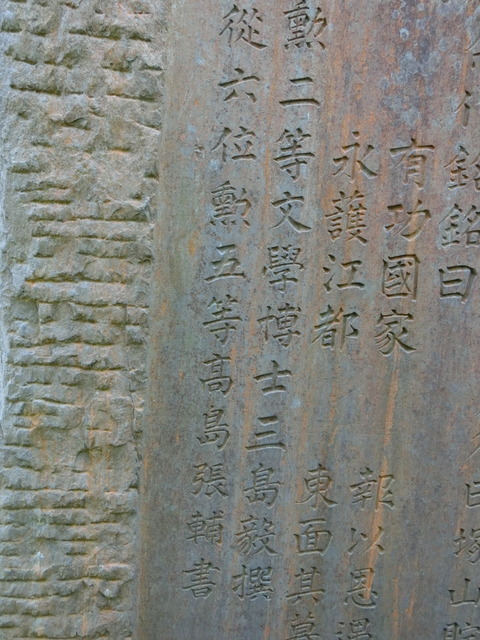 銘銘曰 塚山
有功國家 報以恩遇
永護江都 東面其墓
勳二等文學博士三島毅撰
從六位勳五等髙島張輔書